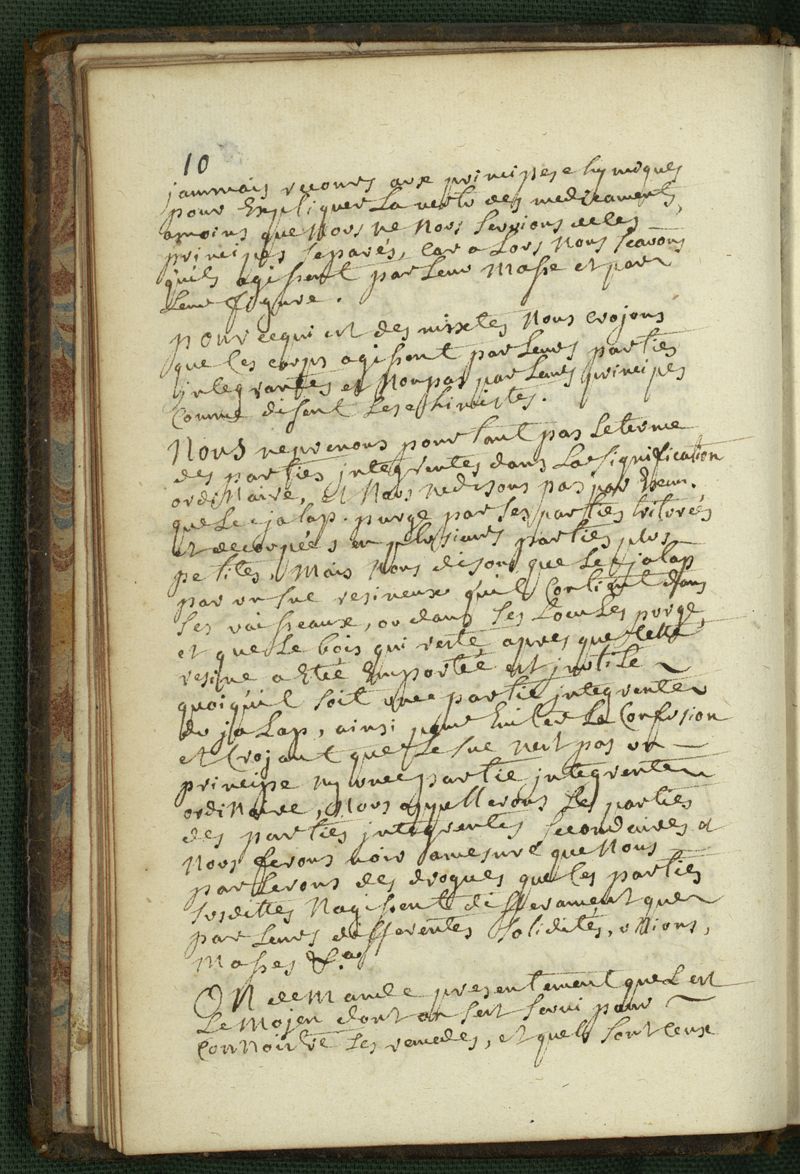 10
jammais recours aux principes chymiques
pour Expliquer La vertu des medicaments,
amoins que Nous ne Nous servions de les
principes separés, car alors Nous scavons
quils agissent par Leur Masse et par
Leur figure.
pour cequi est des mixtes Nous croions
que les corps agissent par Leurs parties
integrantes et Nonpas par Leurs principes
Comme disent Les chimistes.
Nous neprenons pourtant pas Leterme
des parties integrentes dans La signification
ordiNaire, et Nous nedisons pas par Exem.
que Le jalap. purge par ses parties triturées
et decoupées en plusieurs parties plus
petites, Mais Nous disons que Le jalap
par un suc resineux quil Contient dans
ses vaisseaux, ou dans ses Locules purge,
et que Le bois qui reste apres que Cette
resine a Eté Emportée est inutile
quoiquil soit une partie integrente
du jaLap, ainsi pour Eviter La Confusion
et Croiant que Le suc Nest pas un
principe ny unee partie integrente
ordiNaire, Nous appellerons les parties
des parties integrentes secondaires et
Nous ferons voir amesure que Nous
parLerons des drogues que les parties
susdittes Nagissent differament que
par Leurs differentes solidités,
Masses &.a
ON demande presentement quel est
Le Mojen dont on sest servi pour
ConNoitre Les remedes, et quels sont ceux